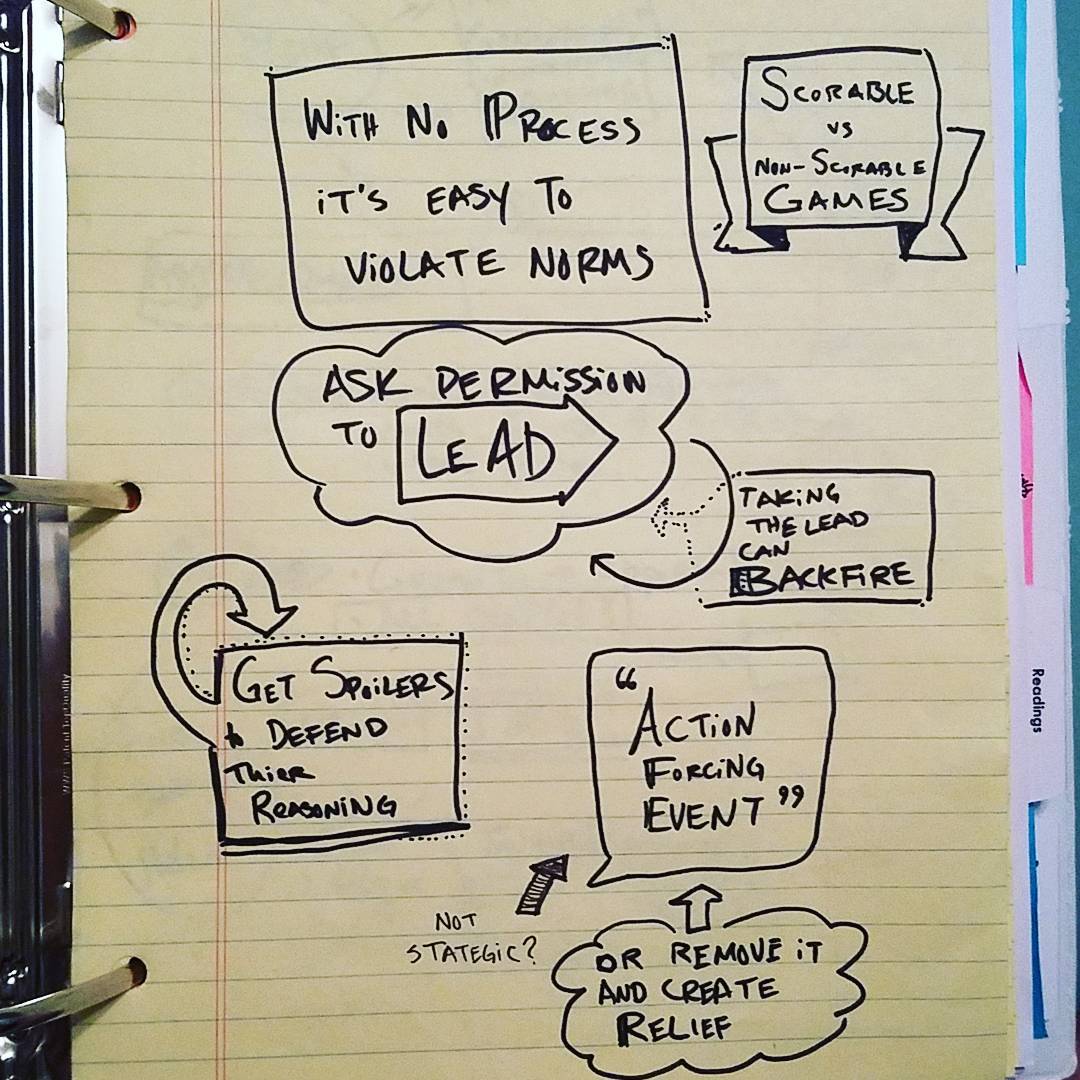 With No Process
it's easy to
violate norms
Scorable
vs
Non-Scorable
Games
Ask permission
to Lead
Taking
the lead
can
Backfire
Get Spoilers
to Defend
Thier
Reasoning
“Action
Forcing
Event”
Not
stategic?
or remove it
and create
Relief
Readings